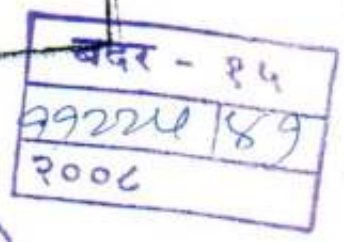 बदर - १५
११२२५ | ४१
२००८